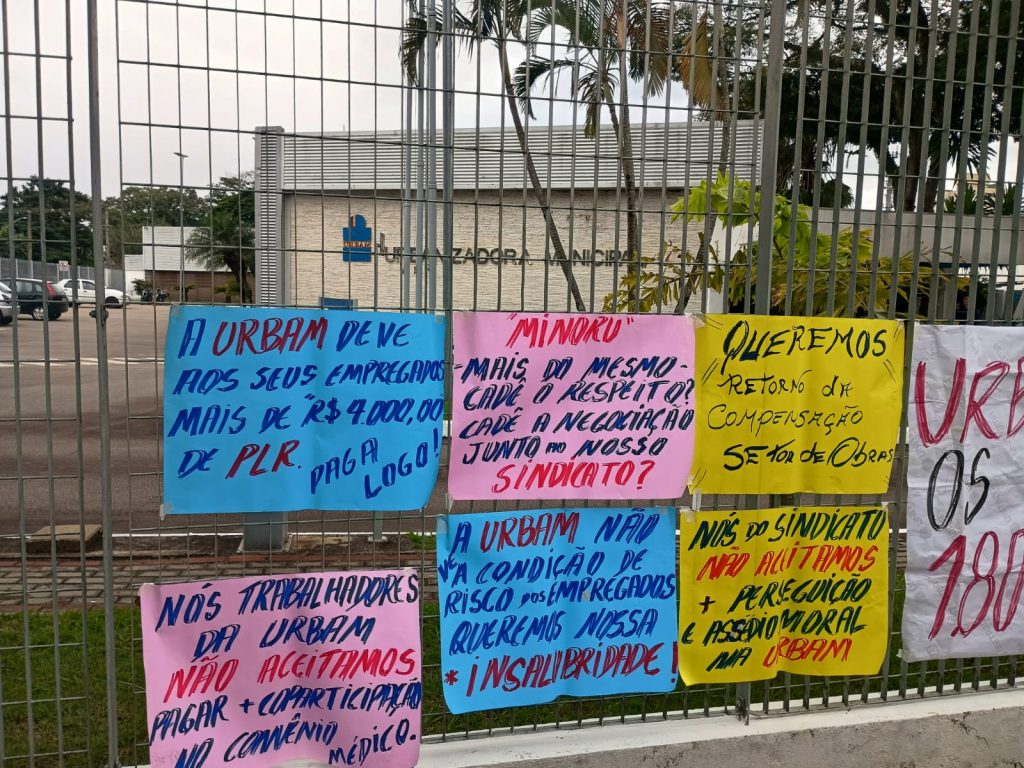 URBAM
URBANIZADORA MUNICIPAL
A URBAM DEVE
AOS SEUS EMPREGADOS
MAIS DE "R$ 4.000,00
DE PLR. PAGA
LOGO!
"MINORU"
- MAIS DO MESMO -
CADÊ O RESPEITO?
CADÊ A NEGOCIAÇÃO
JUNTO AO NOSSO
SINDICATO?
"QUEREMOS
RETORNO DA
COMPENSAÇÃO
SETOR DE OBRAS"
URB
OS
180
A URBAM NÃO
VÊ A CONDIÇÃO DE
RISCO DOS EMPREGADOS
QUEREMOS NOSSA
* INSALUBRIDADE!
NÓS DO SINDICATO
NÃO ACEITAMOS
+ PERSEGUIÇÃO
E ASSÉDIO MORAL
NA URBAM
NÓS TRABALHADORES
DA URBAM
NÃO ACEITAMOS
PAGAR + COPARTICIPAÇÃO
NO CONVÊNIO MÉDICO.